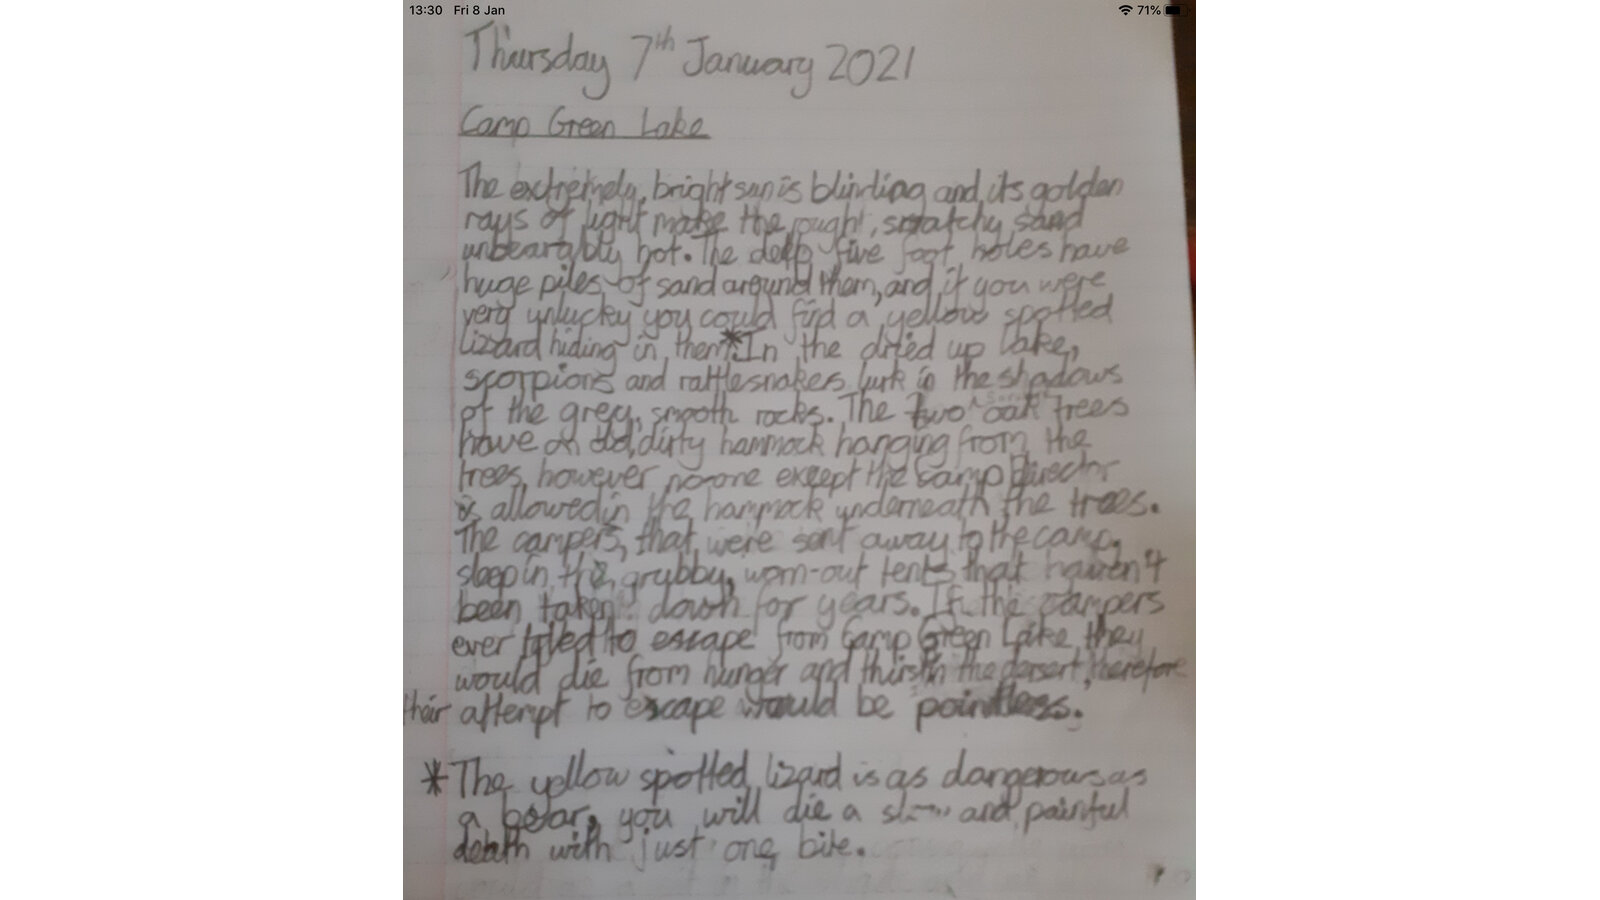 13:30 Fri 8 Jan
71%
Thursday 7th January 2021
Camp Green Lake
The extremely, bright sun is blinding and its golden
rays of light make the rought, scratchy sand
unbearably hot. The deep five foot holes have
huge piles of sand around them, and if you were
very unlucky you could find a yellow spotted
lizard hiding in them*. In the dried up lake,
scorpions and rattlesnakes lurk in the shadows
of the grey, smooth rocks. The two oak trees
have an old, dirty hammock hanging from the
trees, however no-one except the Camp Director
is allowed in the hammock underneath the trees.
The campers, that were sent away to the camp,
sleep in the grubby, worn-out tents that haven't
been taken down for years. If the campers
ever tried to escape from Camp Green Lake they
would die from hunger and thirst in the desert, therefore
their attempt to escape would be pointless.
*The yellow spotted lizard is as dangerous as
a bear, you will die a and painful
death with just one bite.